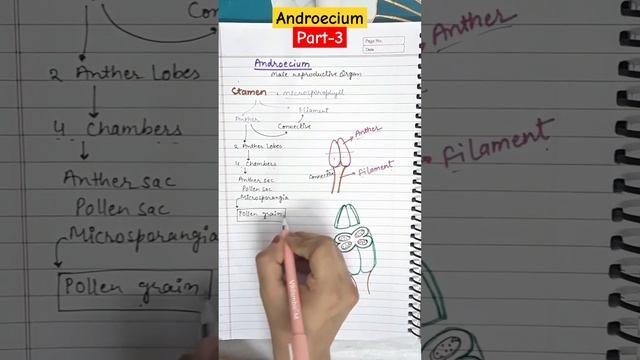 Androecium
Part-3
Page No.
Date
Androecium
Male reproductive Organ
Stamen Microsporophyll
Anther Filament
Connective
2 Anther Lobes
4 Chambers
Anther sac
Pollen sac
Microsporangia
Pollen grain
Anther
Connective
Filament
2 Anther Lobes
4 Chambers
Anther sac
Pollen sac
Microsporangia
Pollen grain
Anther
Filament